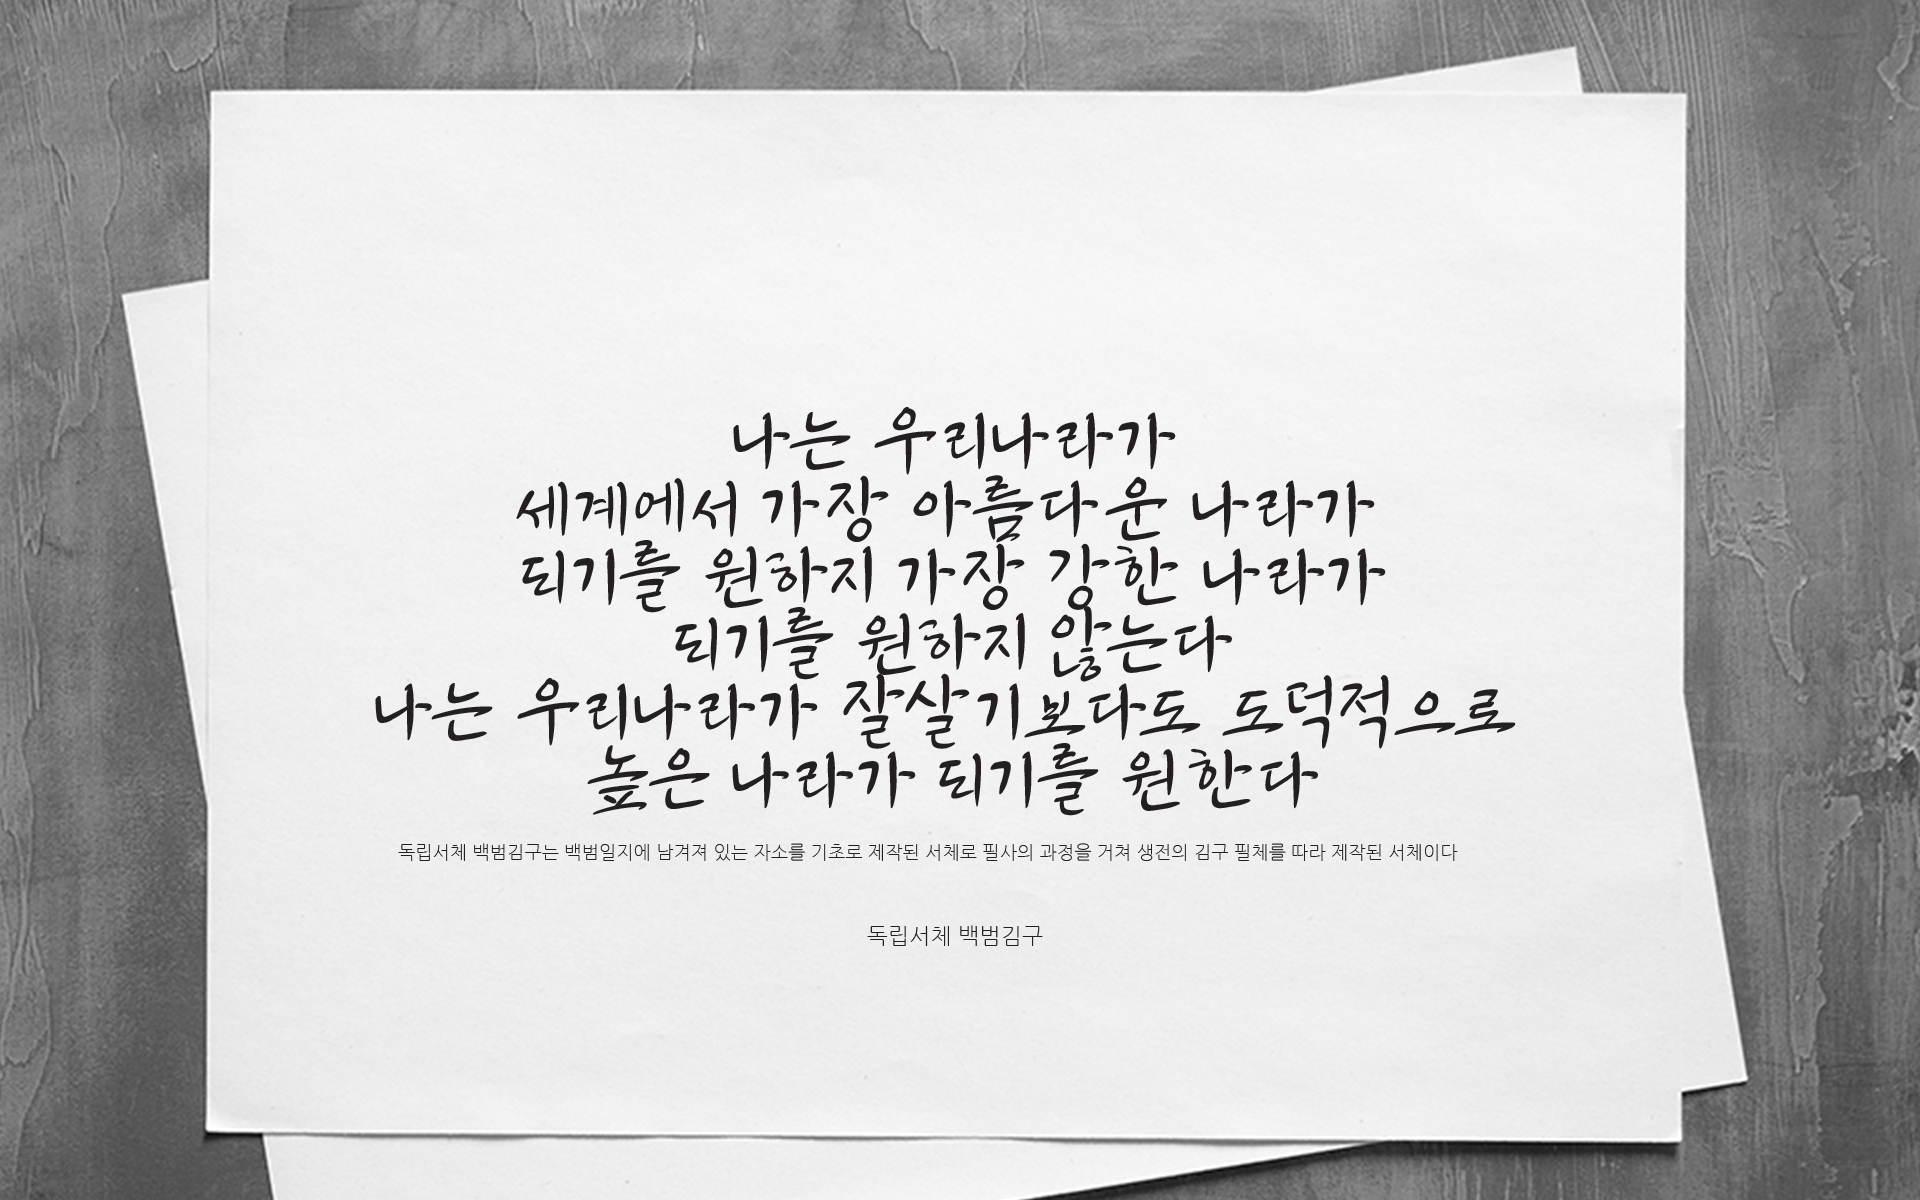 나는 우리나라가
세계에서 가장 아름다운 나라가
되기를 원하지 가장 강한 나라가
되기를 원하지 않는다
나는 우리나라가 잘살기보다도 도덕적으로
높은 나라가 되기를 원한다
독립서체 백범김구는 백범일지에 남겨져 있는 자소를 기초로 제작된 서체로 필사의 과정을 거쳐 생전의 김구 필체를 따라 제작된 서체이다
독립서체 백범김구